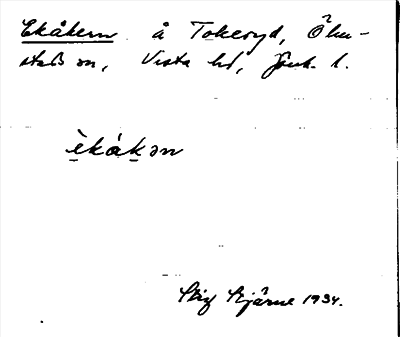 Ekåkern å Tokeryd, Ölm-
stads sn, Vista hd, Jönk. l.
èkåkən
Stig Bjärne 1934.